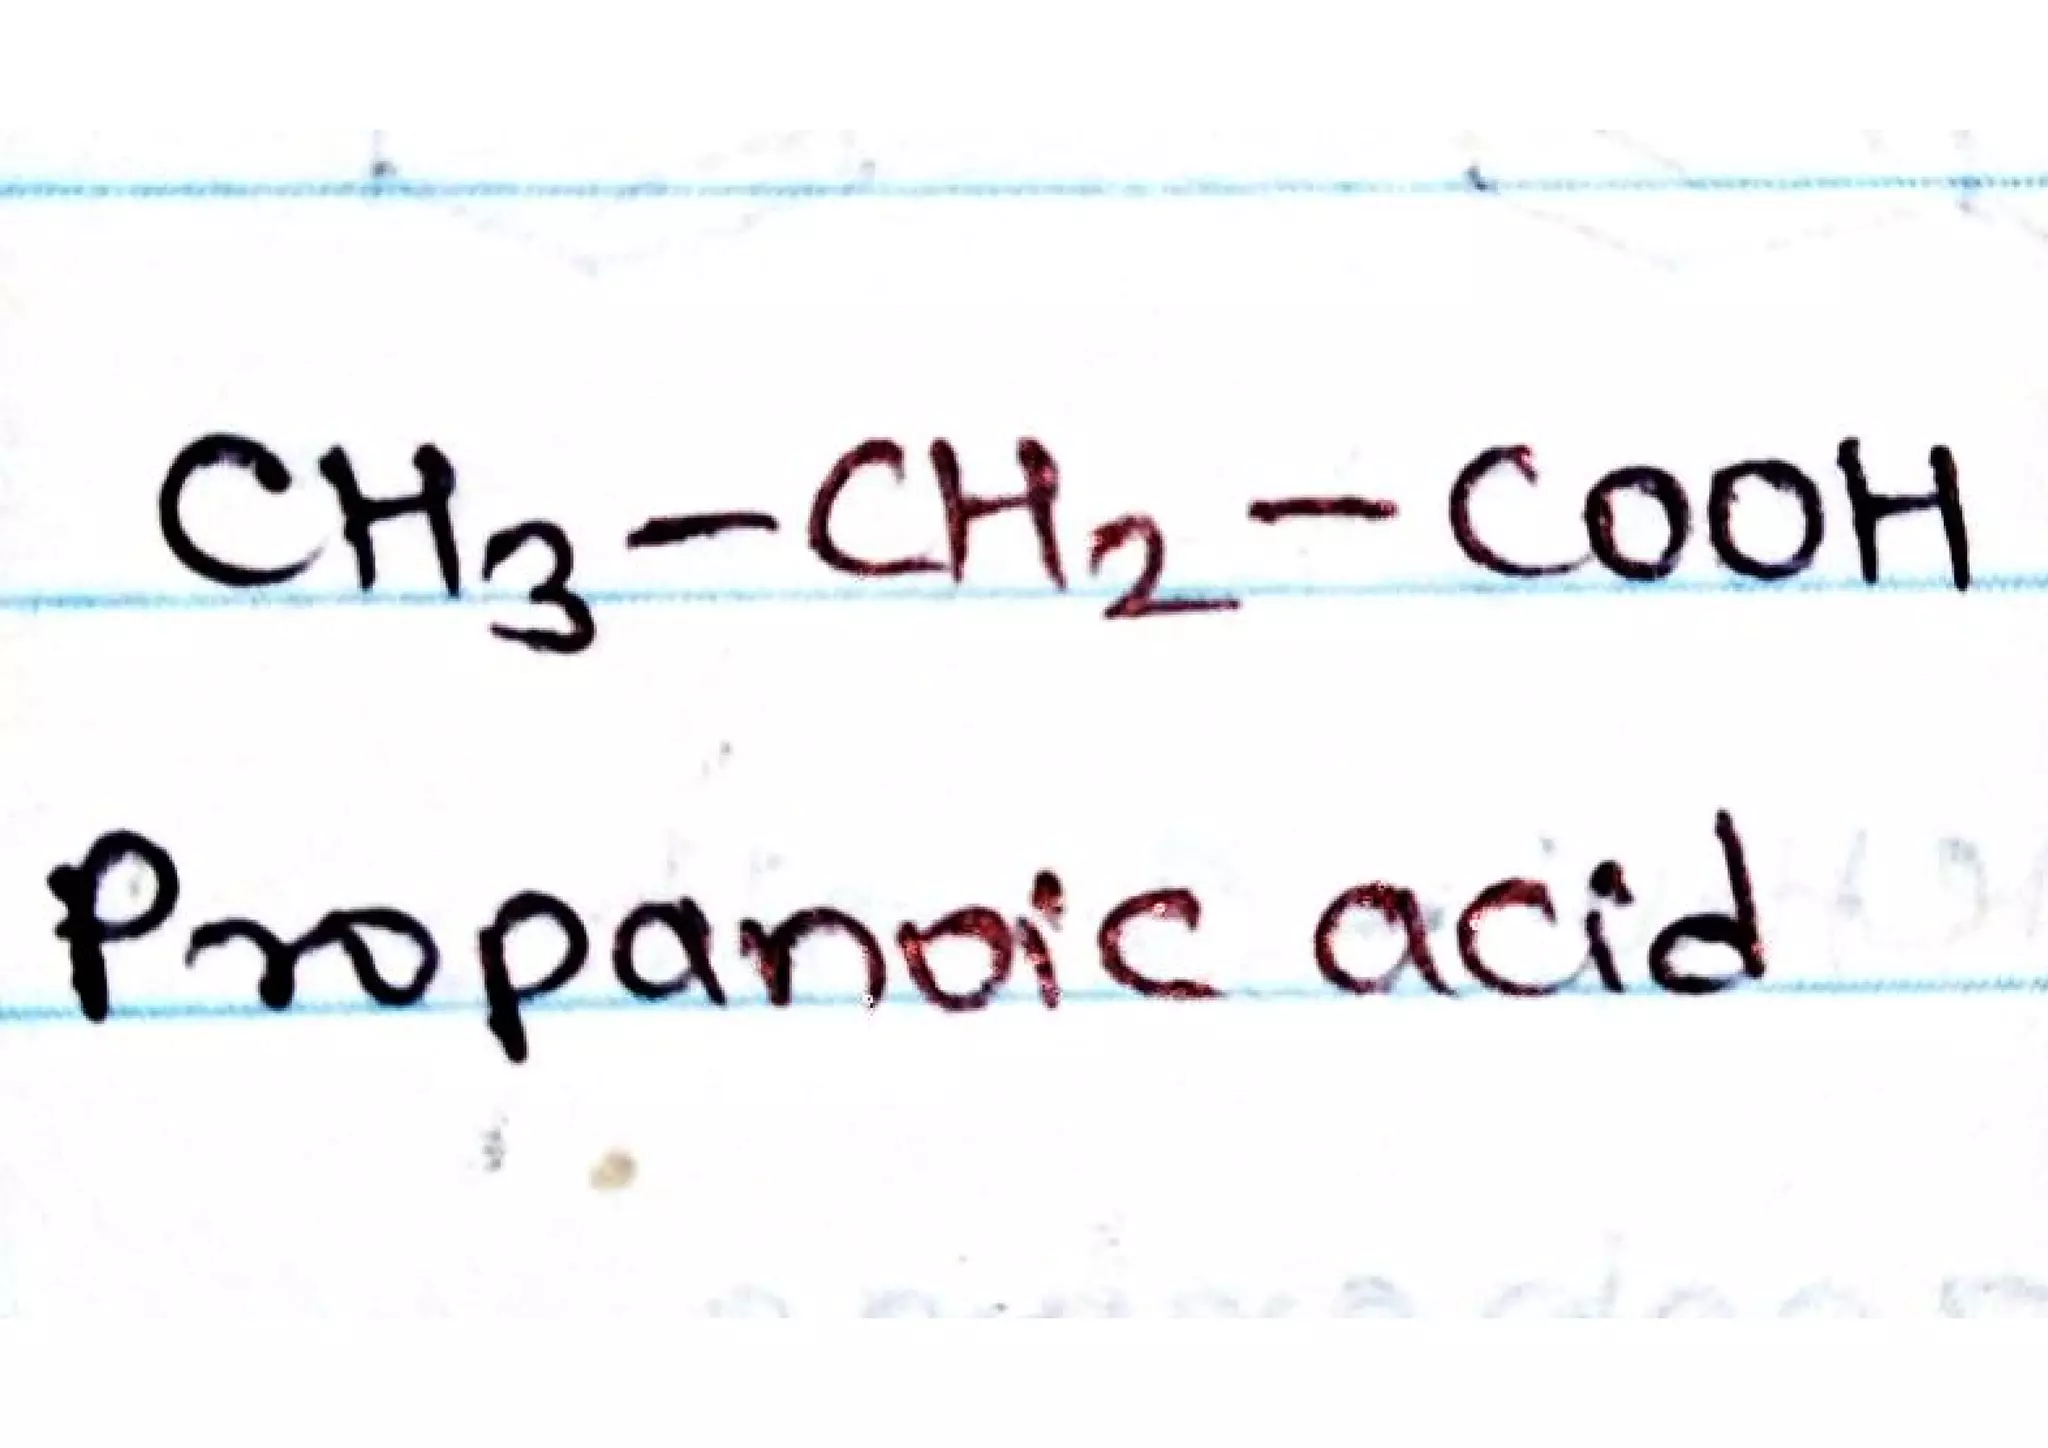 CH₃-CH₂-COOH
Propanoic acid